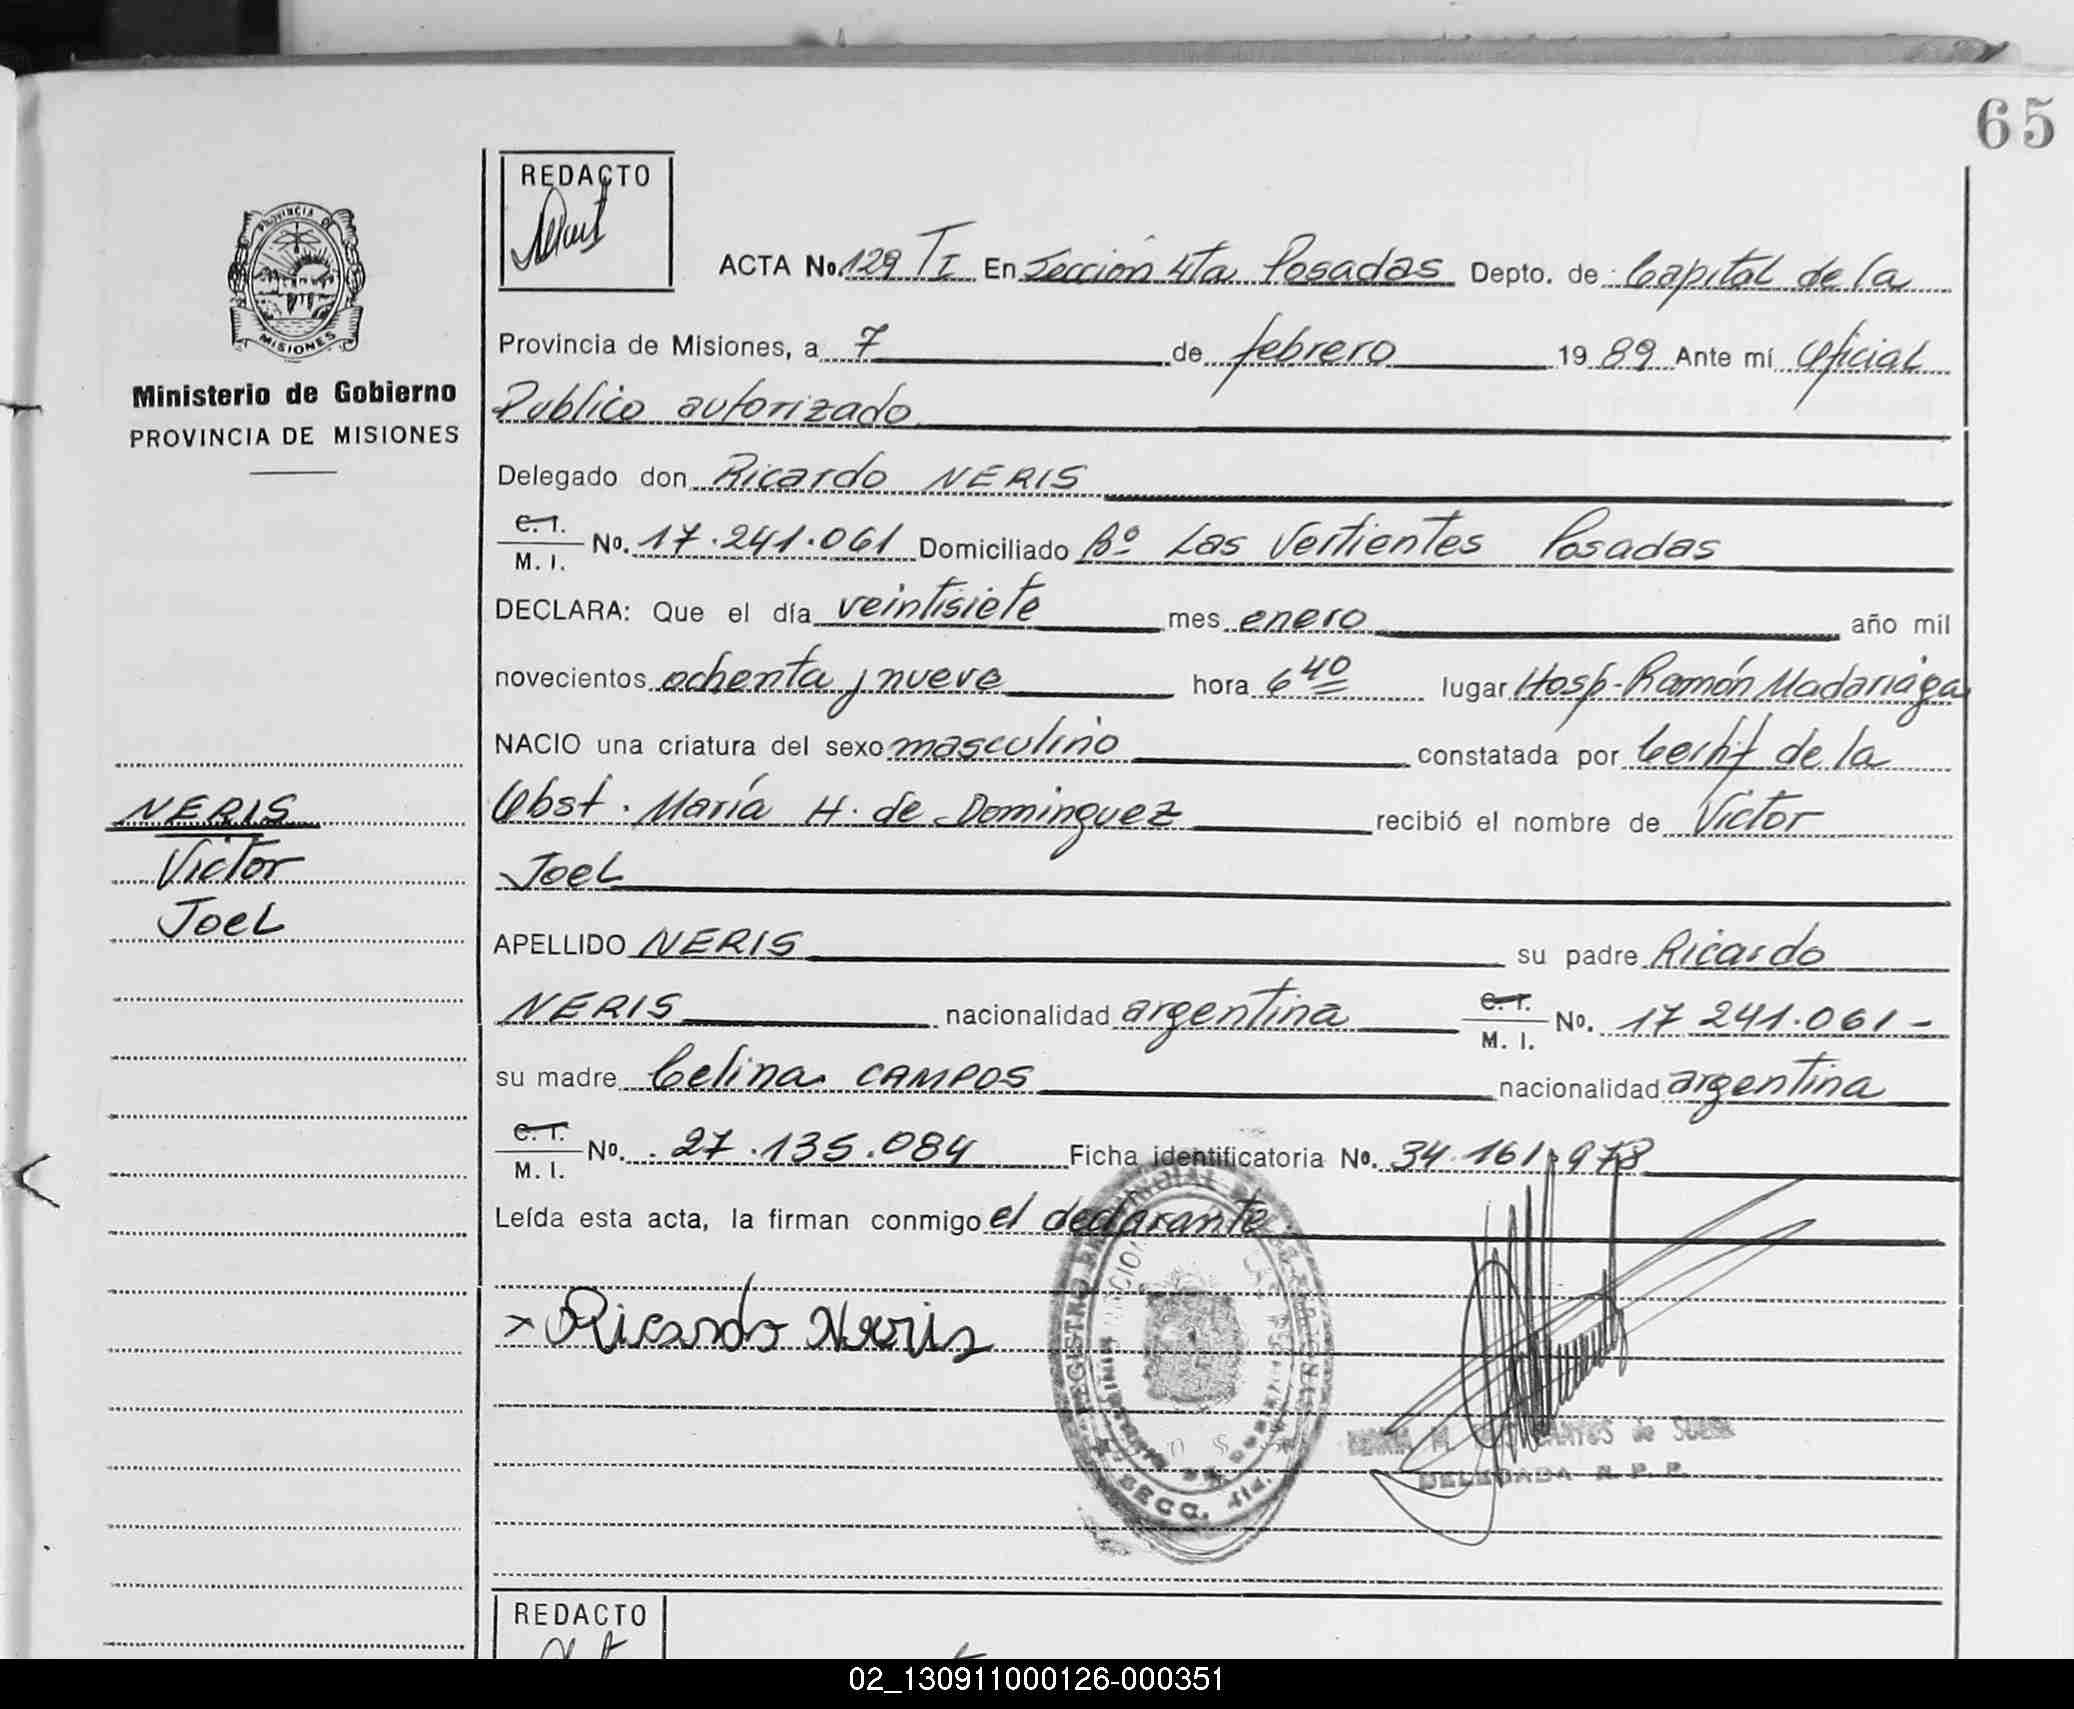 65
REDACTO
PROVINCIA DE
MISIONES
Ministerio de Gobierno
PROVINCIA DE MISIONES
ACTA No. 129 TI En Sección 4ta Posadas Depto. de Capital de la
Provincia de Misiones, a 7 de febrero 19 89 Ante mí Oficial
Publico autorizado
Delegado don Ricardo NERIS
C. I.
M. I. No. 17.241.061 Domiciliado Bº Las Vertientes Posadas
DECLARA: Que el día veintisiete mes enero año mil
novecientos ochenta y nueve hora 6 40 lugar Hosp. Ramón Madariaga
NACIO una criatura del sexo masculino constatada por Certif de la
Obst. María H. de Dominguez recibió el nombre de Victor
Joel
NERIS
Victor
Joel
APELLIDO NERIS su padre Ricardo
NERIS nacionalidad argentina C. I. M. I. No. 17 241.061-
su madre Celina CAMPOS nacionalidad argentina
C. I.
M. I. No. 27.135.084 Ficha identificatoria No. 34.161.978
Leída esta acta, la firman conmigo el declarante.
x Ricardo Neris
SECC. 4ta.
de
DELEGADA R. P. P.
REDACTO
02_130911000126-000351